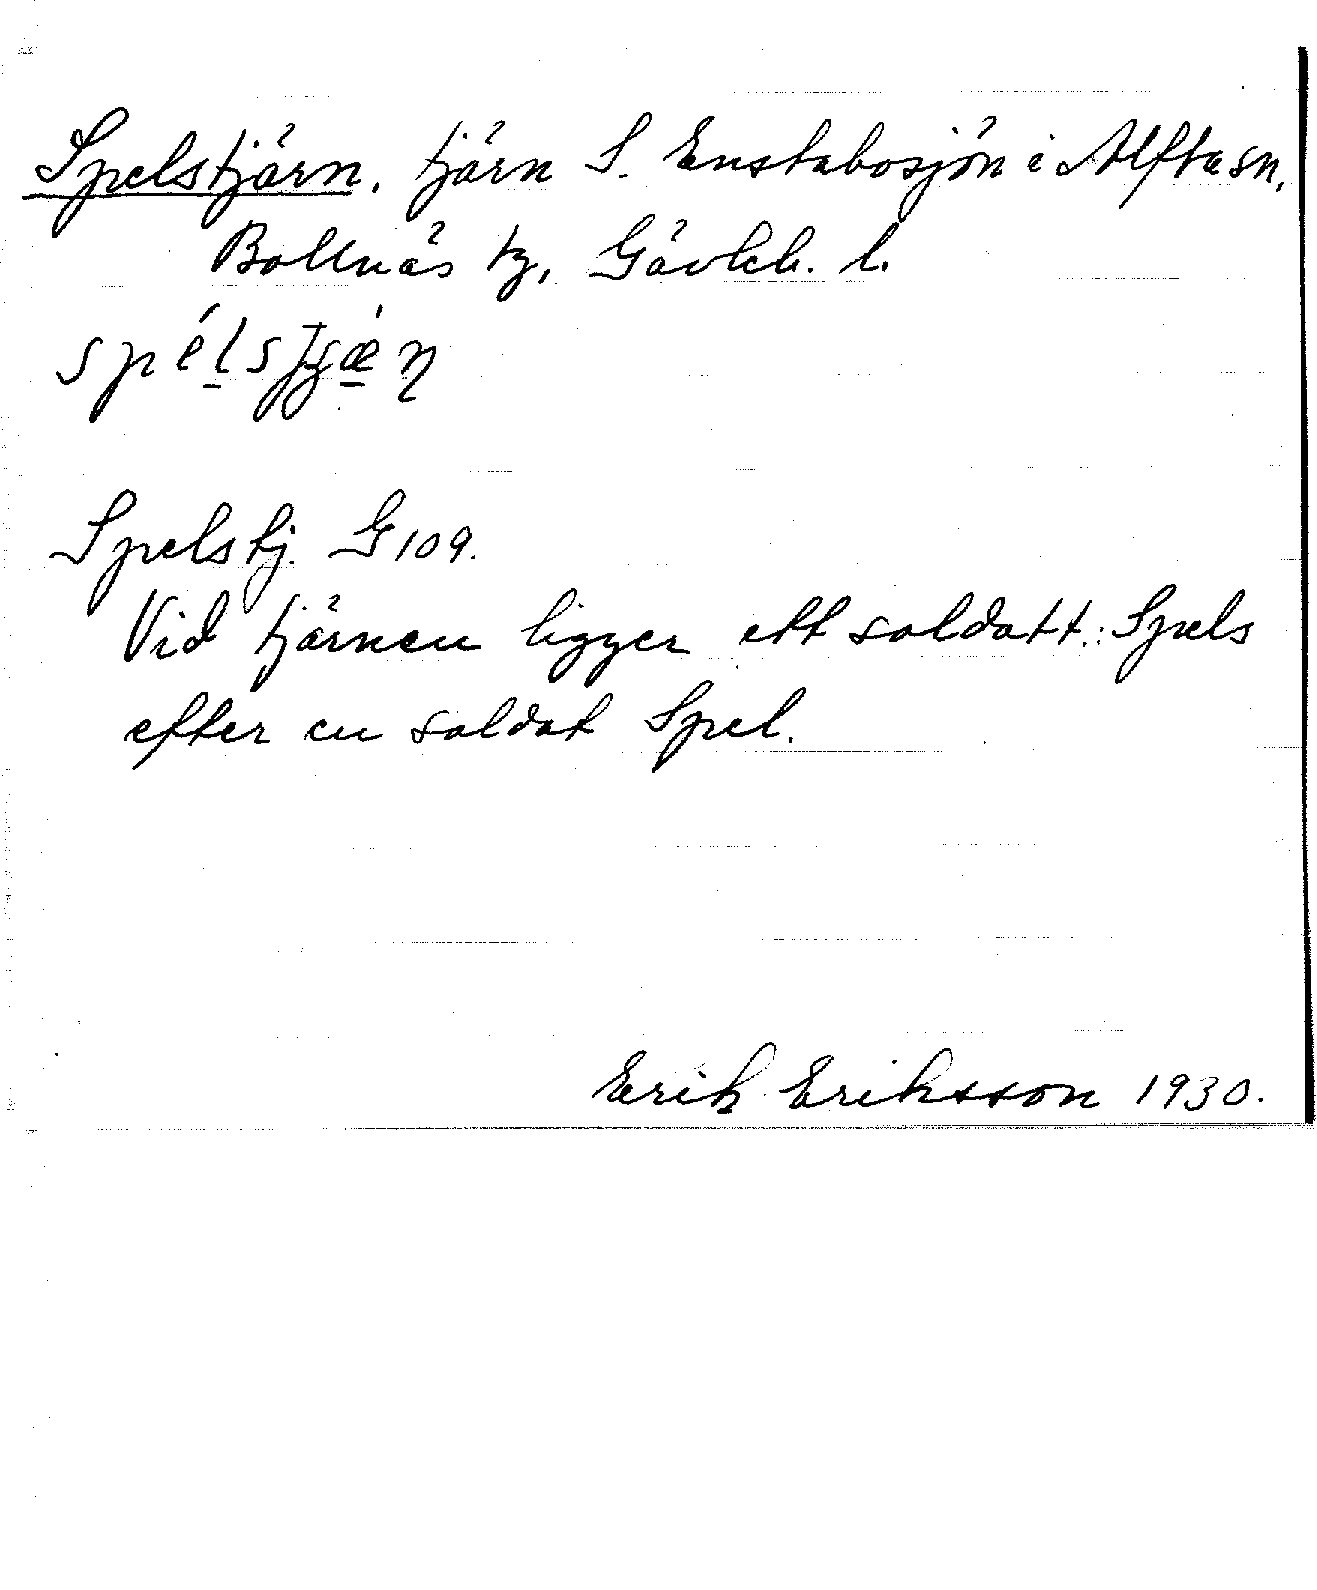 Spelstjärn, tjärn S. Enstabosjön i Alfta sn,
Bollnäs tg, Gävleb. l.
Spelstj. G 109.
Vid tjärnen ligger ett soldatt.: Spels
efter en soldat Spel.
Erik Eriksson 1930.